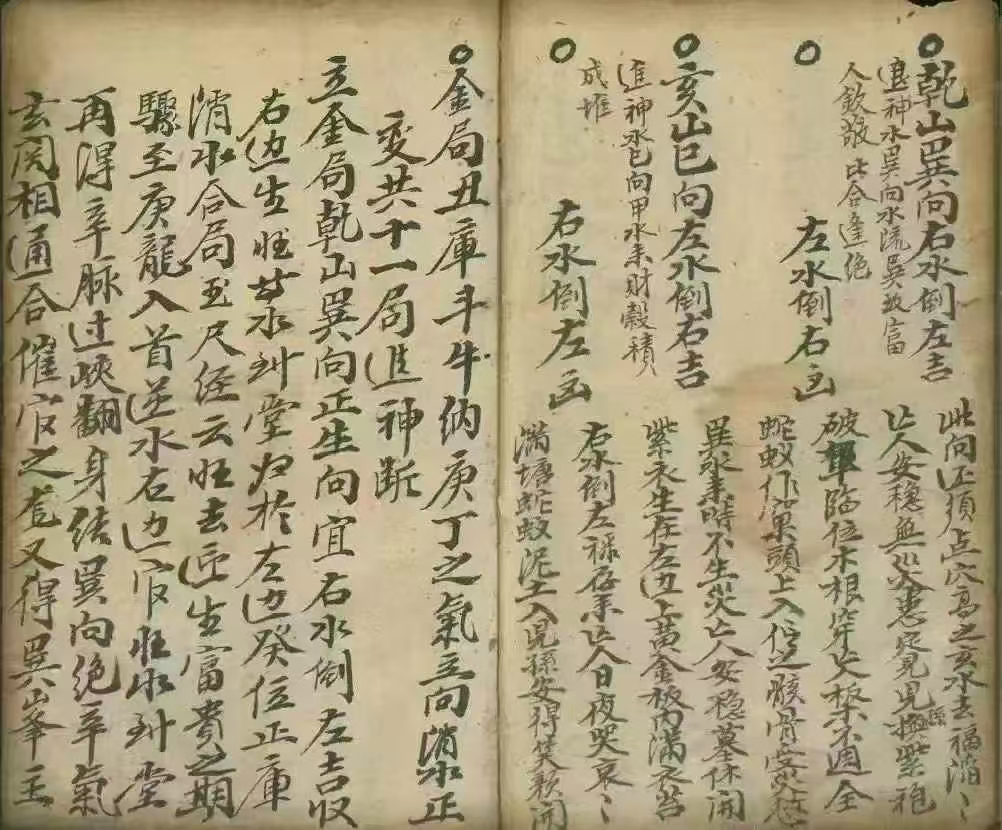 乾山巽向右水倒左吉
進神水巽向水流巽放富
人欽敬比合逢绝
左水倒右凶
此向正须点穴高之亥水去福滔々
亡人安穏無災患定見兒孫換紫袍
破軍臨位木根穿亡板不週全
蛇蚁作窠頭上入位之骸骨受災愆
亥山巳向左水倒右吉
進神水巳向甲水来財穀積
成堆
右水倒左凶
巽水来時不生災亡人安稳墓休開
紫衣生在左边上黄金板内满衣苔
右水倒左禄存来亡人日夜哭哀々
满塘蛇蚁泥土入兒孫安得笑颜開
金局丑庫斗牛纳庚丁之氣立向消水正
变共十一局進神断
立金局乾山巽向正生向宜右水倒左吉収
右边生旺其水到堂归於左边癸位正庫
消水合局玉尺经云旺去迎生富貴之期
驟至庚龍入首逆水右边官旺水到堂
再得辛脉过峽翻身结巽向绝辛氣
玄関相通合催官之局又得巽峯主